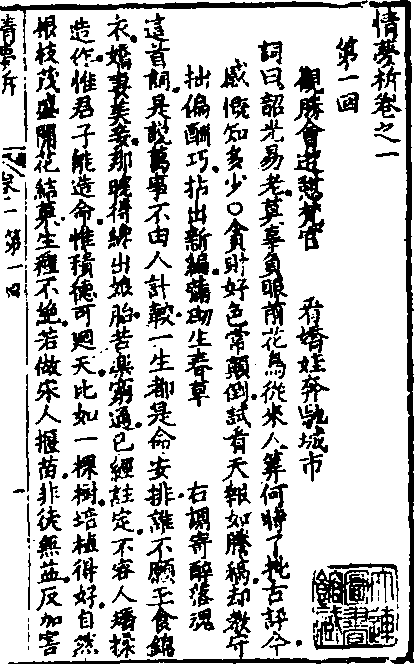 情夢柝卷之一
第一回
觀勝會遊憩梵宮 看嬌娃奔馳城市
詞曰韶光易老莫辜負眼前花鳥從來人算何時了批古評今
感慨知多少○貪財好色常顛倒試看天報如謄稿却教守
拙偏酬巧拈出新編蕩砌生春草 右調寄醉落魄
這首詞是說萬事不由人計較一生都是命安排誰不願玉食錦
衣嬌妻美妾那曉得纔出娘胎苦樂窮通已經註定不容人矯揉
造作惟君子能造命惟積德可廻天比如一棵樹培植得好自然
根枝茂盛開花結菓生種不絶若做宋人揠苗非徒無益反加害
情夢柝
卷一 第一回
一
大連圖書館藏